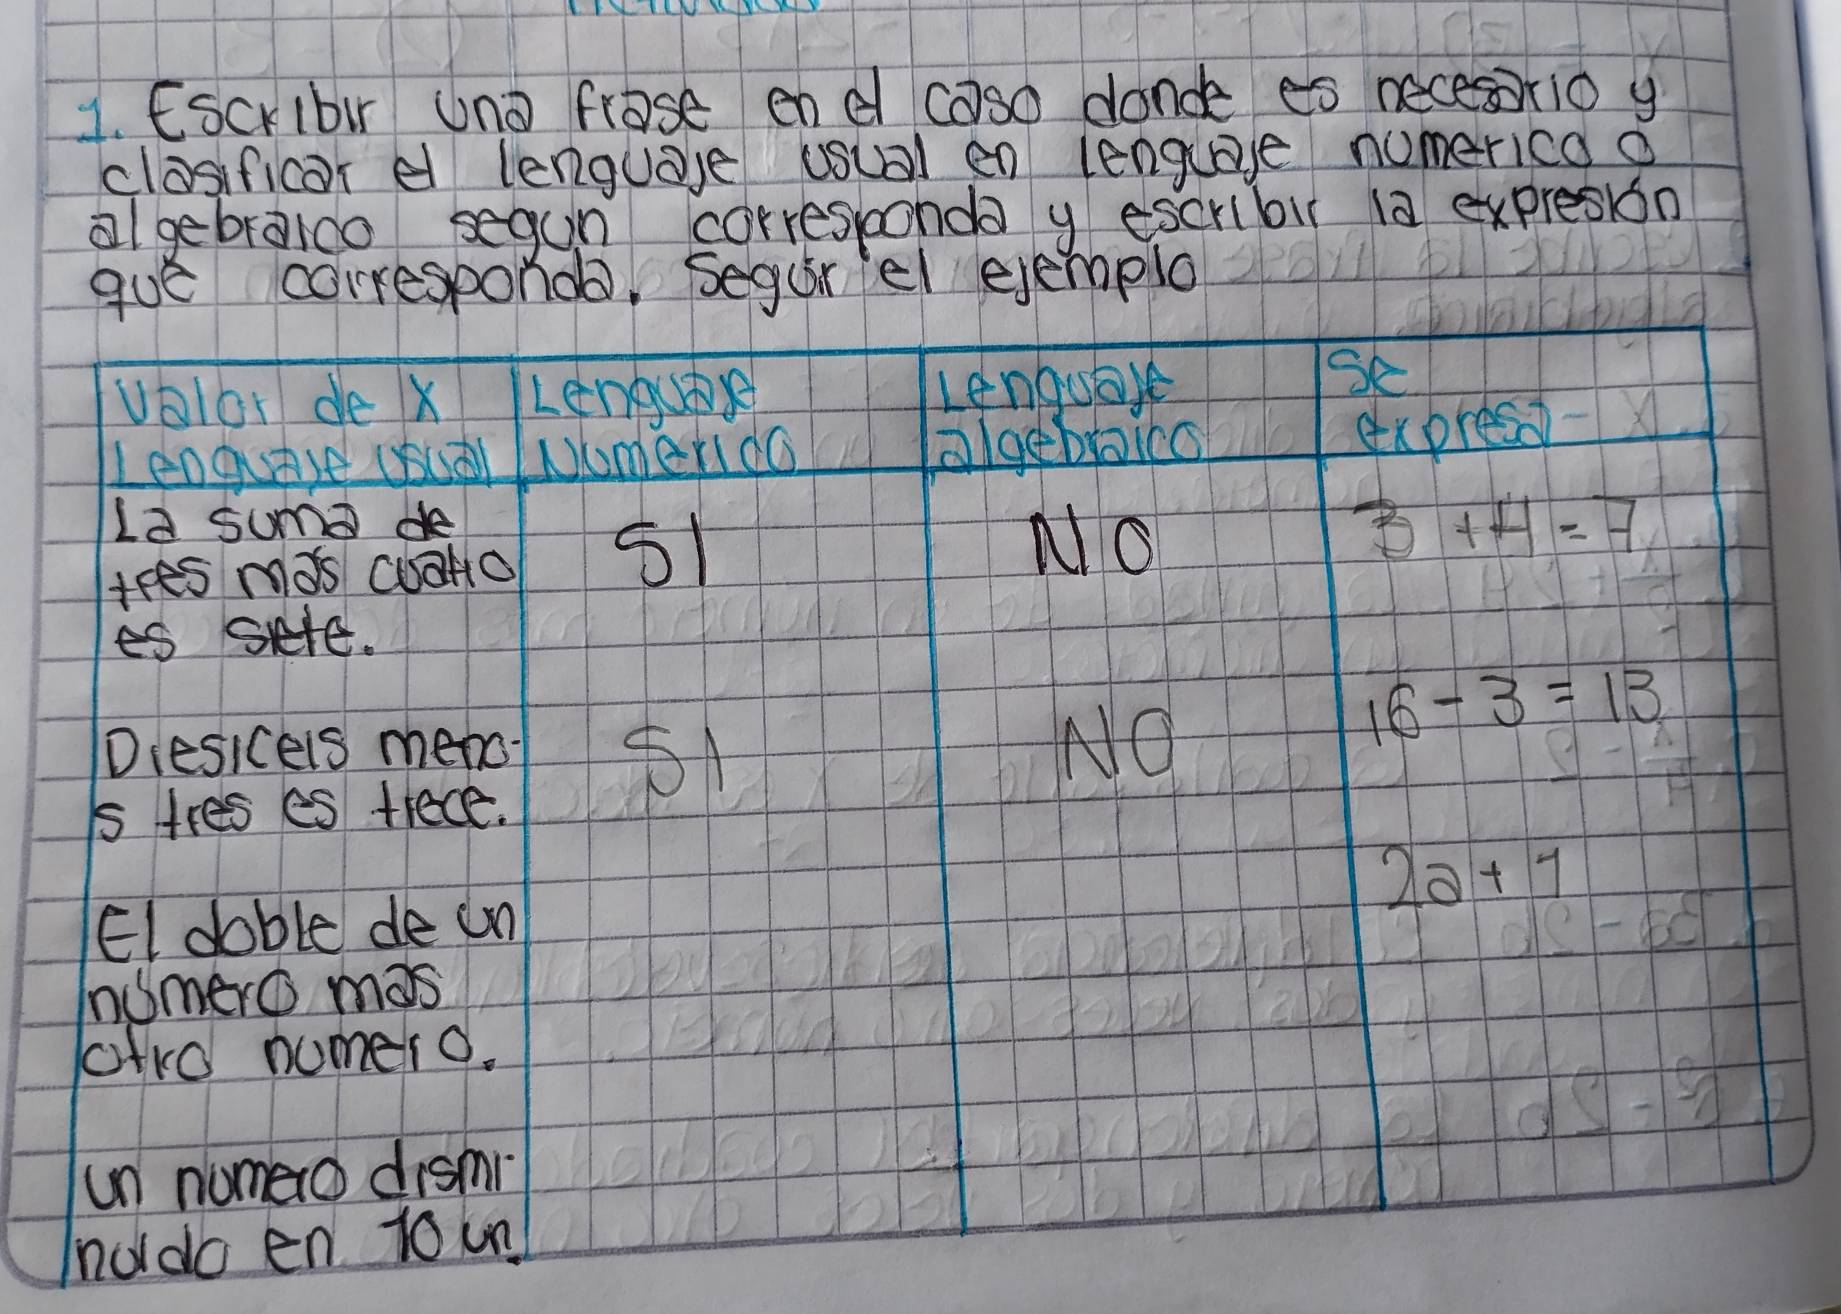 1. Escribir una frase en el caso donde es necesario y
clasificar el lenguaje usual en lenguaje numerico o
algebraico segun corresponda y escribir la expresión
que corresponda. Seguir el ejemplo
Valor de X
Lenguaje usual
Lenguaje
Numerico
Lenguaje
algebraico
Se
expresa
La suma de
tres más cuatro
es siete.
SI
NO
3 + 4 = 7
Diesiceis meno-
s tres es trece.
SI
NO
16 - 3 = 13
El doble de un
número mas
otro numero.
2a + 1
un numero dismi-
nuido en 10 un.